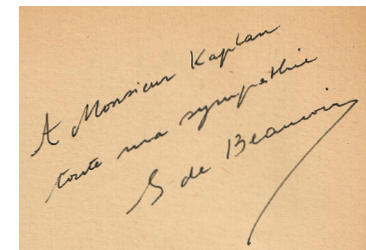 A Monsieur Kaplan
toute ma sympathie
S de Beauvoir